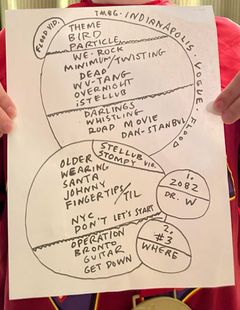 TMBG-INDIANAPOLIS, VOGUE, FLOOD
FLOOD VID.
THEME
BIRD
PARTICLE
WE-ROCK
MINIMUM/TWISTING
DEAD
WU-TANG
OVERNIGHT
iSTELLUB
DARLINGS
WHISTLING
ROAD MOVIE
DAN-STANBUL
STELLUB
STOMPY VID.
OLDER
WEARING
SANTA
JOHNNY
FINGERTIPS/TIL
NYC
DON'T LET'S START
OPERATION
BRONTO
GUITAR
GET DOWN
1.
2082
DR. W
2.
#3
WHERE